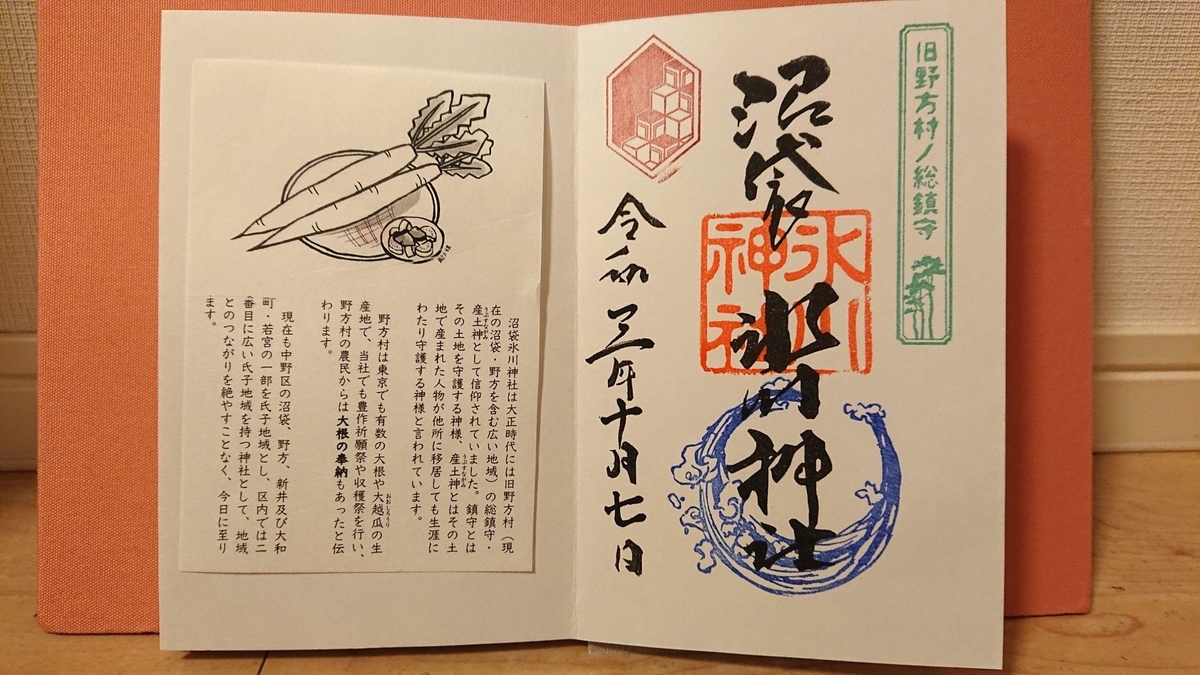 旧野方村ノ総鎮守
沼袋
氷川神社
氷川
神社
令和三年十月七日
沼袋氷川神社は大正時代には旧野方村（現
在の沼袋・野方を含む広い地域）の総鎮守・
産土神として信仰されていました。鎮守とは
その土地を守護する神様、産土神とはその土
地で産まれた人物が他所に移居しても生涯に
わたり守護する神様と言われています。
野方村は東京でも有数の大根や大越瓜の生
産地で、当社でも豊作祈願祭や収穫祭を行い、
野方村の農民からは大根の奉納もあったと伝
わります。
現在も中野区の沼袋、野方、新井及び大和
町・若宮の一部を氏子地域とし、区内では二
番目に広い氏子地域を持つ神社として、地域
とのつながりを絶やすことなく、今日に至り
ます。